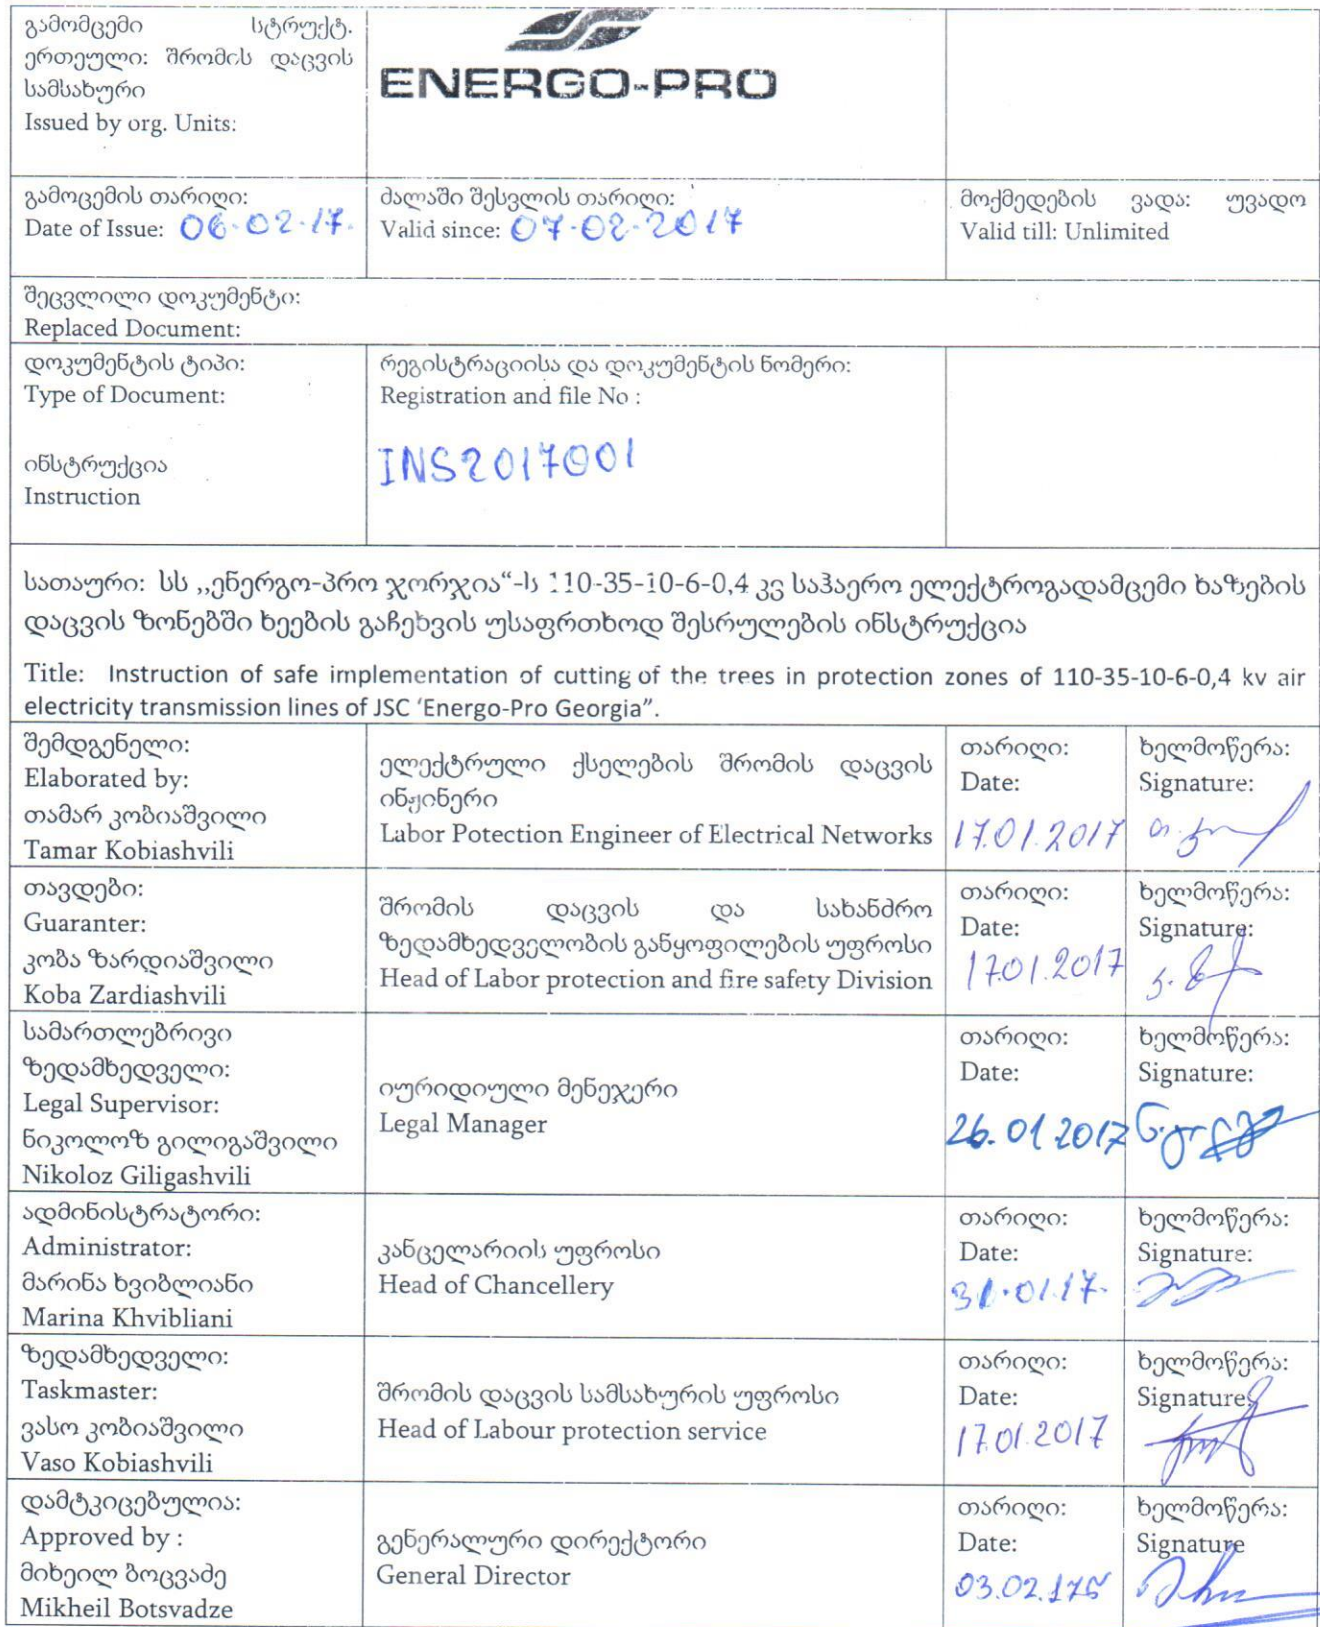 გამომცემი სტრუქტ.
ერთეული: შრომის დაცვის
სამსახური
Issued by org. Units:
ENERGO-PRO
გამოცემის თარიღი:
Date of Issue: 06.02.17.
ძალაში შესვლის თარიღი:
Valid since: 07.02.2017
მოქმედების ვადა: უვადო
Valid till: Unlimited
შეცვლილი დოკუმენტი:
Replaced Document:
დოკუმენტის ტიპი:
Type of Document:
ინსტრუქცია
Instruction
რეგისტრაციისა და დოკუმენტის ნომერი:
Registration and file No :
INS2017001
სათაური: სს ,,ენერგო-პრო ჯორჯია“-ს 110-35-10-6-0,4 კვ საჰაერო ელექტროგადამცემი ხაზების
დაცვის ზონებში ხეების გაჩეხვის უსაფრთხოდ შესრულების ინსტრუქცია
Title: Instruction of safe implementation of cutting of the trees in protection zones of 110-35-10-6-0,4 kv air
electricity transmission lines of JSC ‘Energo-Pro Georgia”.
შემდგენელი:
Elaborated by:
თამარ კობიაშვილი
Tamar Kobiashvili
ელექტრული ქსელების შრომის დაცვის
ინჟინერი
Labor Potection Engineer of Electrical Networks
თარიღი:
Date:
17.01.2017
ხელმოწერა:
Signature:
თავდები:
Guaranter:
კობა ზარდიაშვილი
Koba Zardiashvili
შრომის დაცვის და სახანძრო
ზედამხედველობის განყოფილების უფროსი
Head of Labor protection and fire safety Division
თარიღი:
Date:
17.01.2017
ხელმოწერა:
Signature:
სამართლებრივი
ზედამხედველი:
Legal Supervisor:
ნიკოლოზ გილიგაშვილი
Nikoloz Giligashvili
იურიდიული მენეჯერი
Legal Manager
თარიღი:
Date:
26.01.2017
ხელმოწერა:
Signature:
ადმინისტრატორი:
Administrator:
მარინა ხვიბლიანი
Marina Khvibliani
კანცელარიის უფროსი
Head of Chancellery
თარიღი:
Date:
31.01.17.
ხელმოწერა:
Signature:
ზედამხედველი:
Taskmaster:
ვასო კობიაშვილი
Vaso Kobiashvili
შრომის დაცვის სამსახურის უფროსი
Head of Labour protection service
თარიღი:
Date:
17.01.2017
ხელმოწერა:
Signature
დამტკიცებულია:
Approved by :
მიხეილ ბოცვაძე
Mikheil Botsvadze
გენერალური დირექტორი
General Director
თარიღი:
Date:
03.02.17წ
ხელმოწერა:
Signature